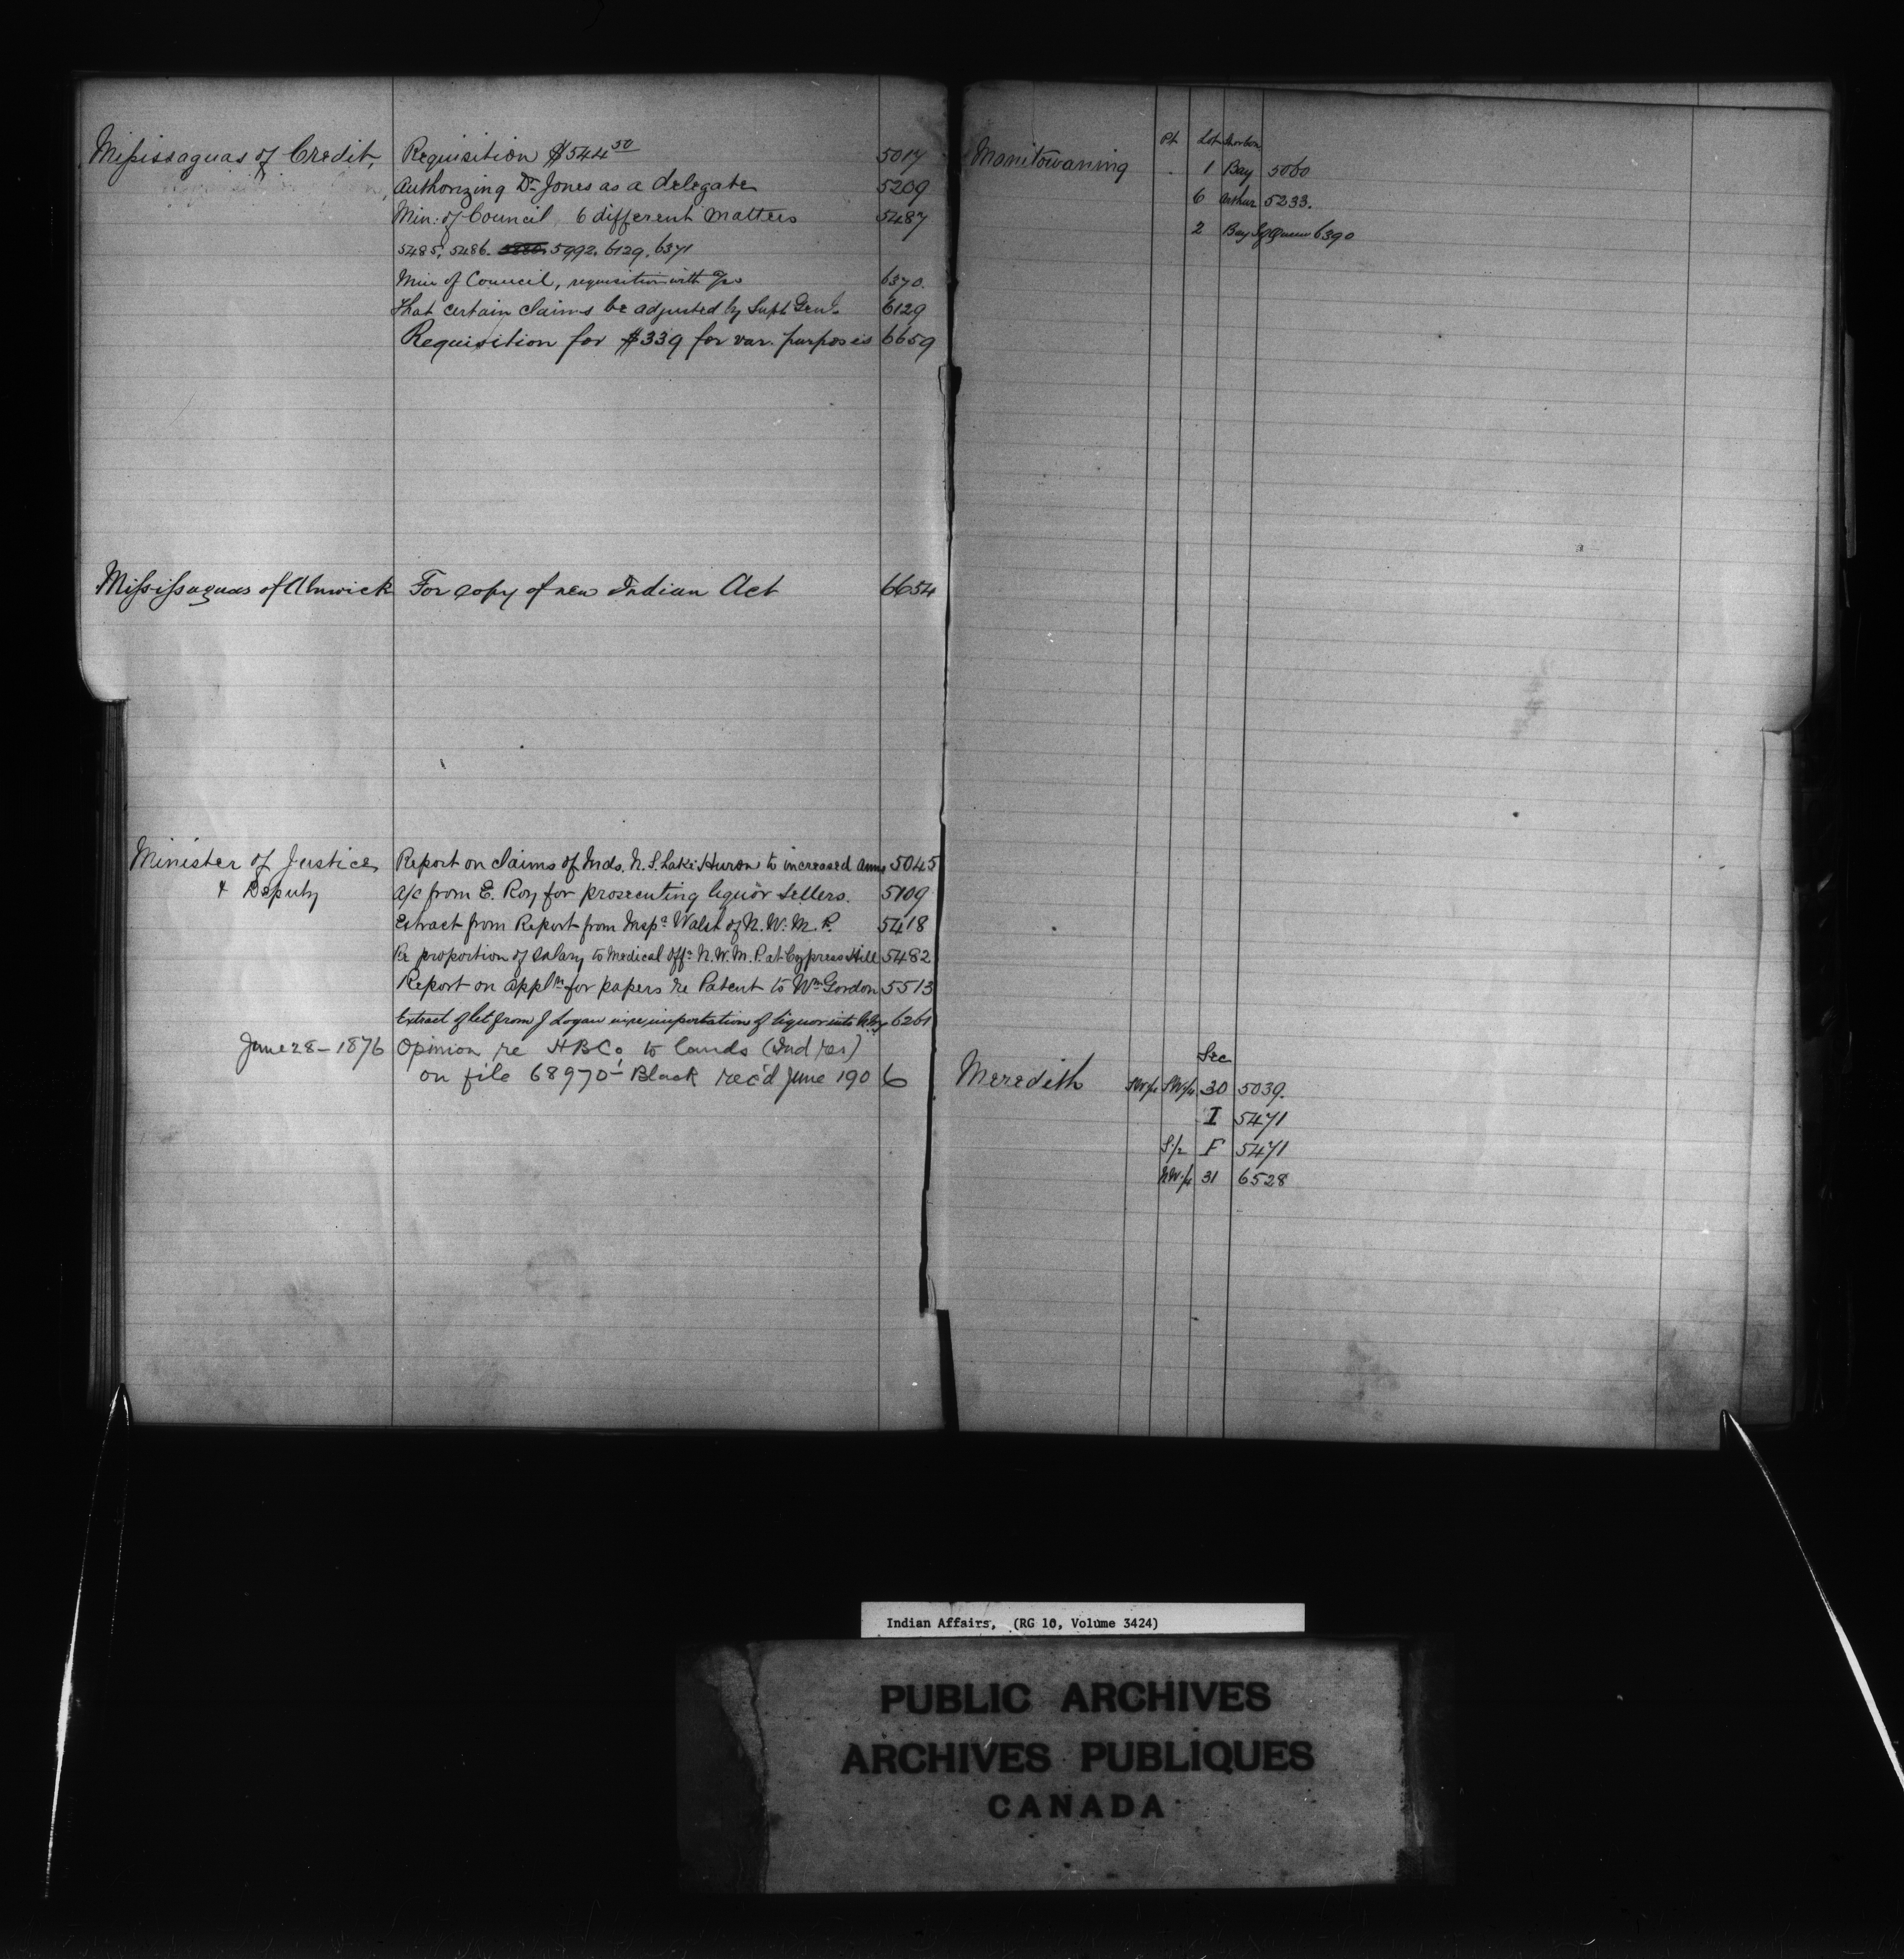 Missisaguas of Credit, Requisition $544 50 5017
Authorizing Dr Jones as a delegate 5209
Min: of Council 6 different matters 5487
5485, 5486. 5992, 6129, 6371
Min of Council, requisition with 6370.
That certain claims be adjusted by Supt Genl. 6129
Requisition for $339 for var. purposes 6659
Mississaguas of Alnwick For copy of new Indian Act 6654
Minister of Justice Report on claims of Inds. N. S. Lake Huron to increased anns 5045
& Deputy a/c from E. Roy for prosecuting liquor sellers. 5109
Extract from Report from Inspr Walsh of N. W. M. P. 5418
Re proportion of salary to Medical Offr N. W. M. P. at Cypress Hill 5482
Report on appln for papers re Patent to Wm Gordon 5513
Extract of let from J Logan importation of liquor into 6261
June 28 - 1876 Opinion re HBCo. to lands (Ind res)
on file 68970 - Black rec'd June 1906
Manitowaning Pt Lot
1 Bay 5060
6 Arthur 5233.
2 Bay Queen 6390
Sec
Meredith SW¼ SW¼ 30 5039.
I 5471
S½ F 5471
NW¼ 31 6528
Indian Affairs, (RG 10, Volume 3424)
PUBLIC ARCHIVES
ARCHIVES PUBLIQUES
CANADA